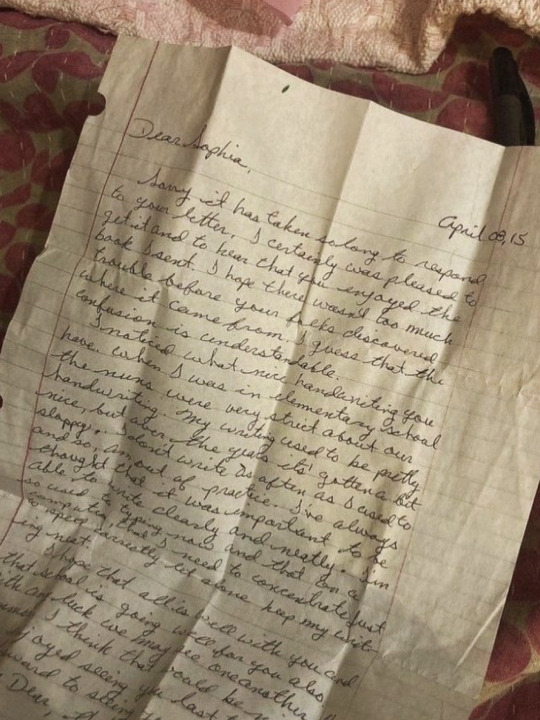 Dear Sophia,
April 09, 15
Sorry it has taken so long to respond
to your letter. I certainly was pleased to
get it and to hear that you enjoyed the
book I sent. I hope there wasn't too much
trouble before your folks discovered
where it came from. I guess that the
confusion is understandable.
I noticed what nice handwriting you
have. When I was in elementary school
the nuns were very strict about our
handwriting. My writing used to be pretty
nice, but over the years its' gotten a bit
sloppy. I don't write as often as I used to
and so, am out of practice. I've always
thought that it was important to be
able to write clearly and neatly. I'm
so used to typing now and that on a
computer, that I need to concentrate just
to spell correctly let alone keep my writ-
ing neat.
I hope that all is well with you and
that school is going well for you also.
luck we may see one another
I think that would be
oyed seeing you last
ward to
Dear,